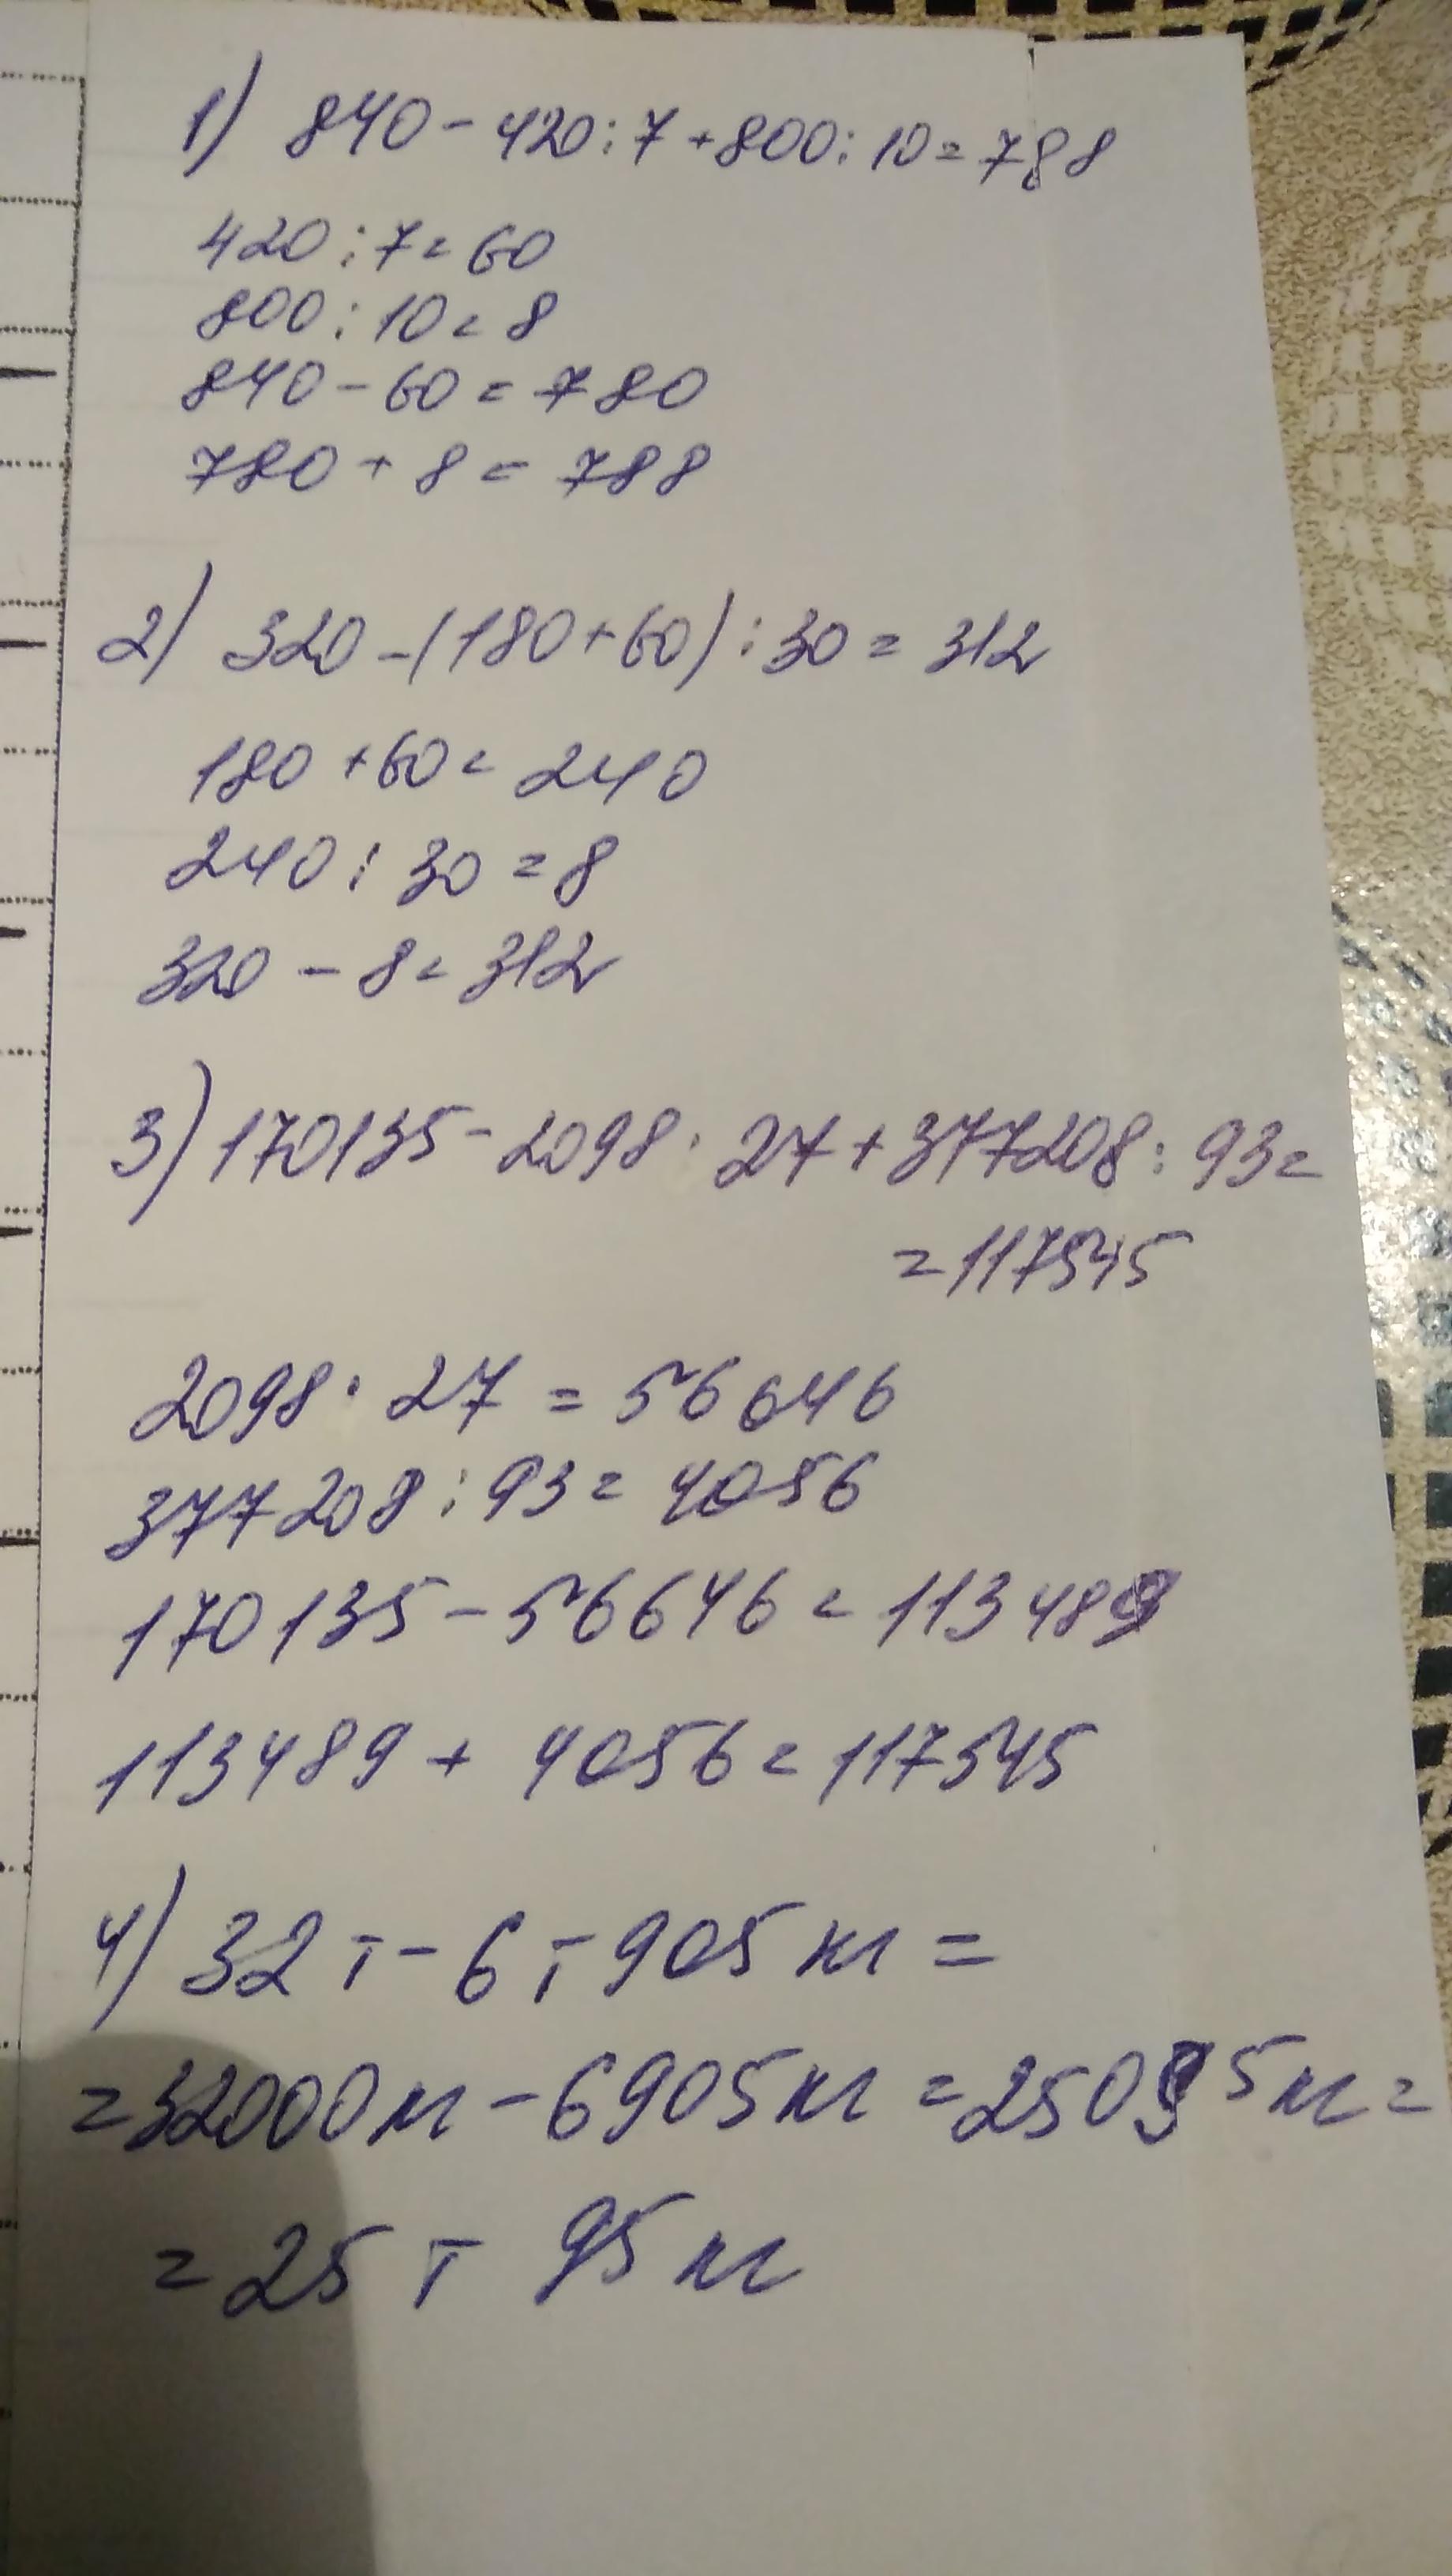 1) 840 - 420 : 7 + 800 : 10 = 788
420 : 7 = 60
800 : 10 = 8
840 - 60 = 780
780 + 8 = 788
2) 320 - (180 + 60) : 30 = 312
180 + 60 = 240
240 : 30 = 8
320 - 8 = 312
3) 170135 - 2098 · 27 + 377208 : 93 =
= 117545
2098 · 27 = 56646
377208 : 93 = 4056
170135 - 56646 = 113489
113489 + 4056 = 117545
4) 32 т - 6 т 905 кг =
= 32000 кг - 6905 кг = 25095 кг =
= 25 т 95 кг